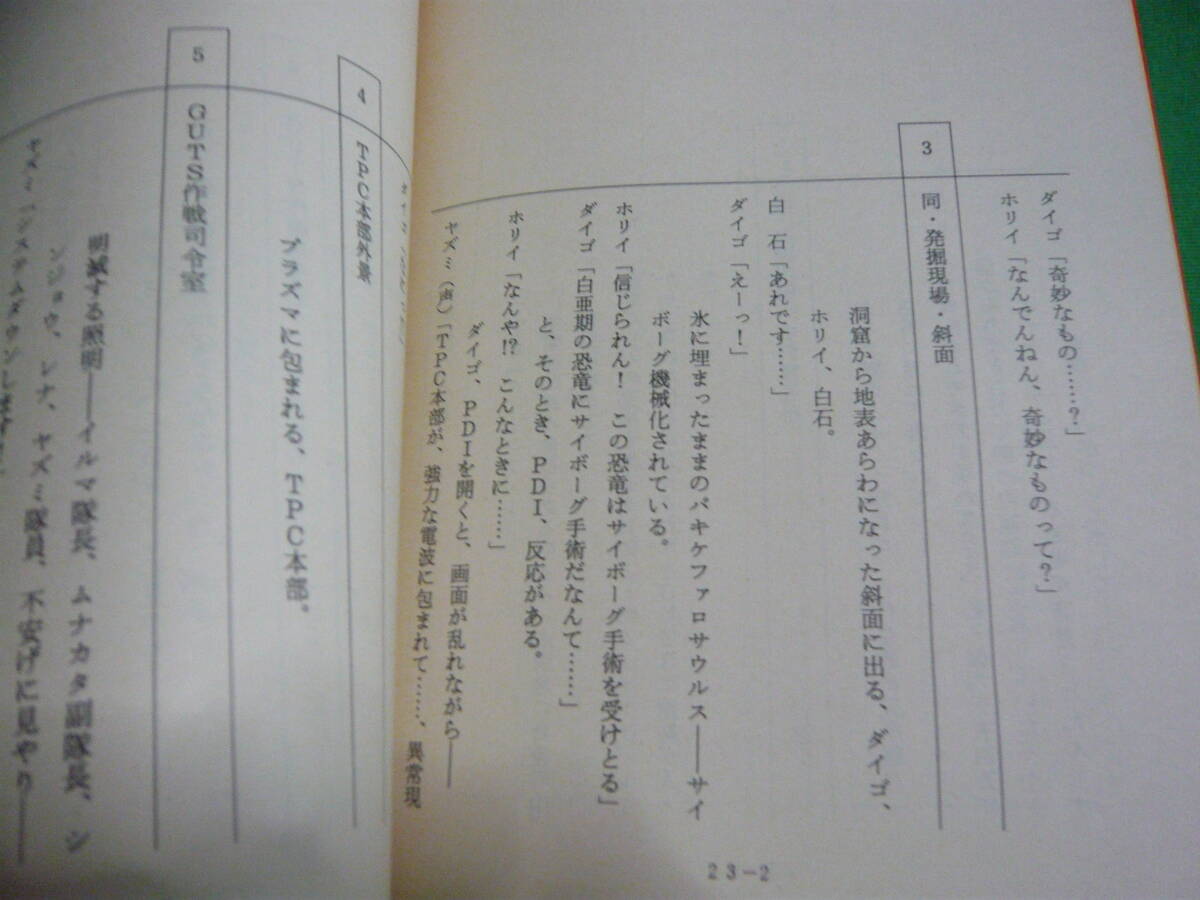 ダイゴ「奇妙なもの……?」
ホリイ「なんでんねん、奇妙なものって?」
3 同・発掘現場・斜面
洞窟から地表あらわになった斜面に出る、ダイゴ、
ホリイ、白石。
白 石「あれです……」
ダイゴ「えーっ!」
氷に埋まったままのパキケファロサウルス――サイ
ボーグ機械化されている。
ホリイ「信じられん! この恐竜はサイボーグ手術を受けとる」
ダイゴ「白亜期の恐竜にサイボーグ手術だなんて……」
と、そのとき、PDI、反応がある。
ホリイ「なんや!? こんなときに……」
ダイゴ、PDIを開くと、画面が乱れながら――
ヤズミ(声)「TPC本部が、強力な電波に包まれて……、異常現
23-2
4 TPC本部外景
プラズマに包まれる、TPC本部。
5 GUTS作戦司令室
明滅する照明――イルマ隊長、ムナカタ副隊長、シ
ンジョウ、レナ、ヤズミ隊員、不安げに見やり――
ヤズミ「システムダウンします